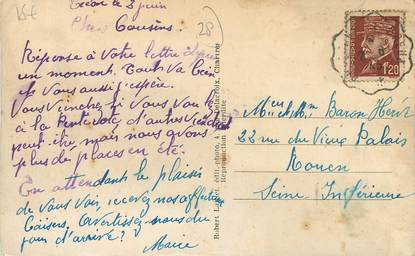 le 3 juin
Chers Cousins.
Réponse à votre lettre depuis
un moment. Tout va bien
Vous aussi j'espère.
Vous viendrez si vous voulez
à la Pentecôte d'autres viendront
peut être mais nous avons
plus de places en été.
En attendant le plaisir
de vous voir, recevez nos affectueux
baisers. Avertissez-nous du
jour d'arrivée?
Marie
28
Robert édit.-photo. Delacroix, Chartres
Reproduction interdite
1F20
M. et Mme Baron Hervé
22 rue du Vieux Palais
Rouen
Seine Inférieure